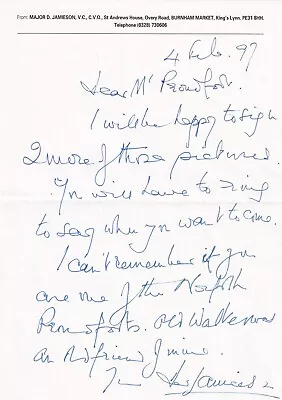 From: MAJOR D. JAMIESON, V.C., C.V.O., St Andrews House, Overy Road, BURNHAM MARKET, King's Lynn, PE31 8HH.
Telephone (0328) 730606
4 Feb. 97
Dear Mr Proudfoot.
I will be happy to sign
2 more of those pictures.
You will have to ring
to say when you want to come.
I can't remember if you
are one of the Norfolk
Proudfoots. Old
an old friend of mine.
Jamieson